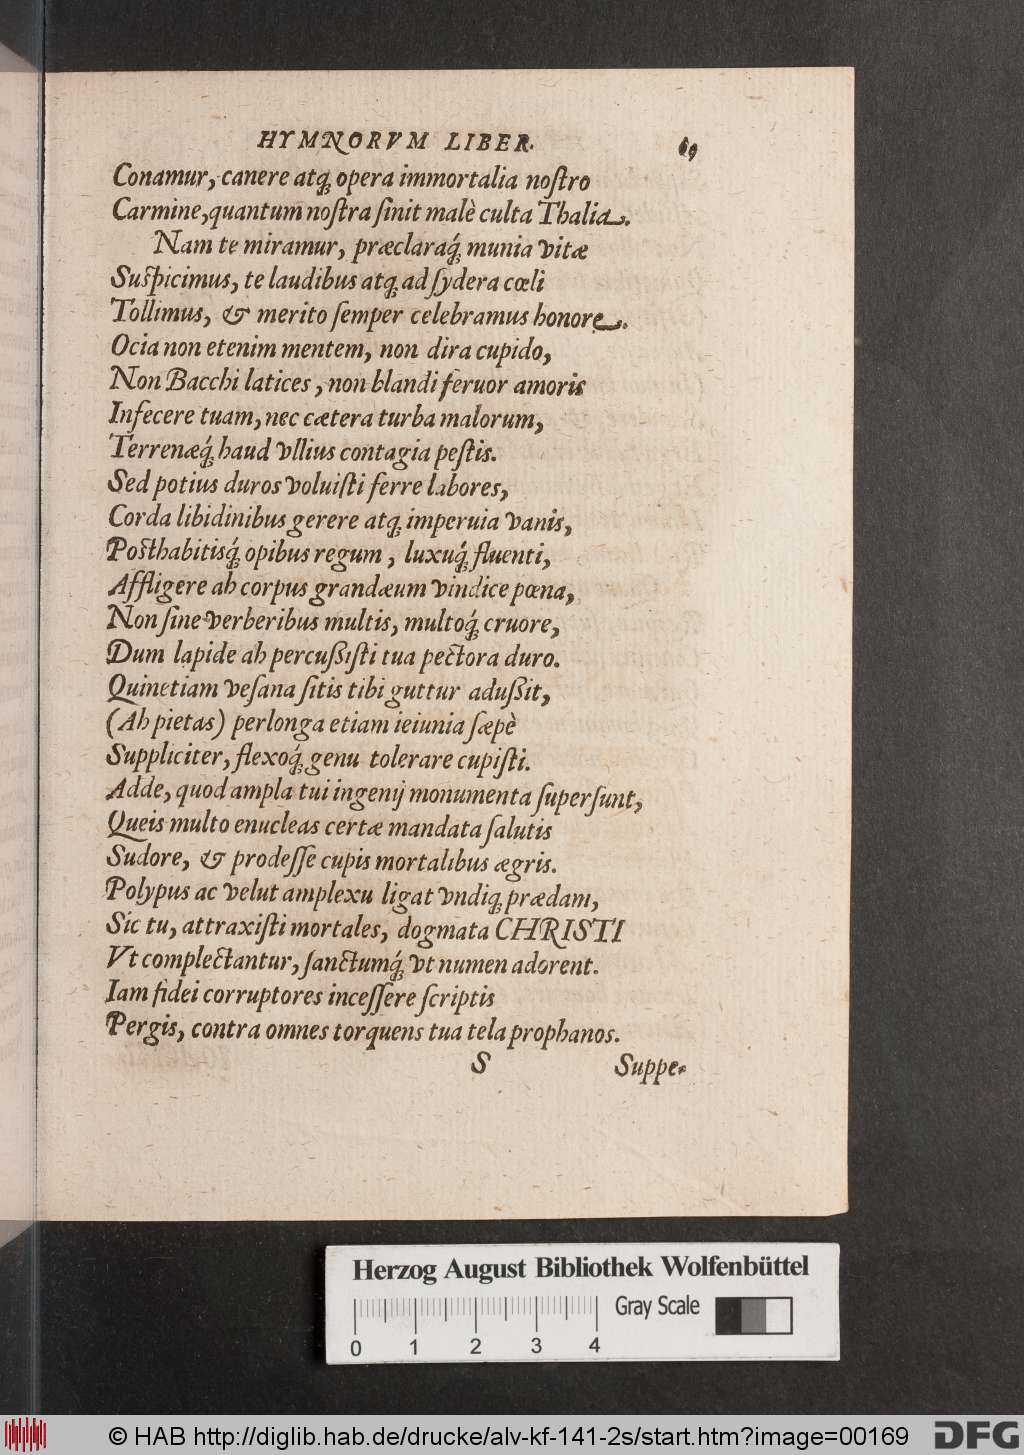 HYMNORVM LIBER. 69
Conamur, canere atq; opera immortalia noſtro
Carmine, quantum noſtra ſinit malè culta Thalia.
Nam te miramur, præclaraq́; munia vitæ
Suſpicimus, te laudibus atq; ad ſydera cœli
Tollimus, & merito ſemper celebramus honore.
Ocia non etenim mentem, non dira cupido,
Non Bacchi latices, non blandi feruor amoris
Infecere tuam, nec cætera turba malorum,
Terrenæq́; haud vllius contagia peſtis.
Sed potius duros voluiſti ferre labores,
Corda libidinibus gerere atq; imperuia vanis,
Poſthabitisq́; opibus regum, luxuq́; fluenti,
Affligere ah corpus grandæuum vindice pœna,
Non ſine verberibus multis, multoq́; cruore,
Dum lapide ah percußiſti tua pectora duro.
Quinetiam veſana ſitis tibi guttur adußit,
(Ah pietas) perlonga etiam ieiunia ſæpè
Suppliciter, flexoq́; genu tolerare cupiſti.
Adde, quod ampla tui ingenij monumenta ſuperſunt,
Queis multo enucleas certæ mandata ſalutis
Sudore, & prodeſſe cupis mortalibus ægris.
Polypus ac velut amplexu ligat vndiq; prædam,
Sic tu, attraxiſti mortales, dogmata CHRISTI
Vt complectantur, ſanctumq́; vt numen adorent.
Iam fidei corruptores inceſſere ſcriptis
Pergis, contra omnes torquens tua tela prophanos.
S Suppe-
Herzog August Bibliothek Wolfenbüttel
Gray Scale
0 1 2 3 4
© HAB http://diglib.hab.de/drucke/alv-kf-141-2s/start.htm?image=00169 DFG